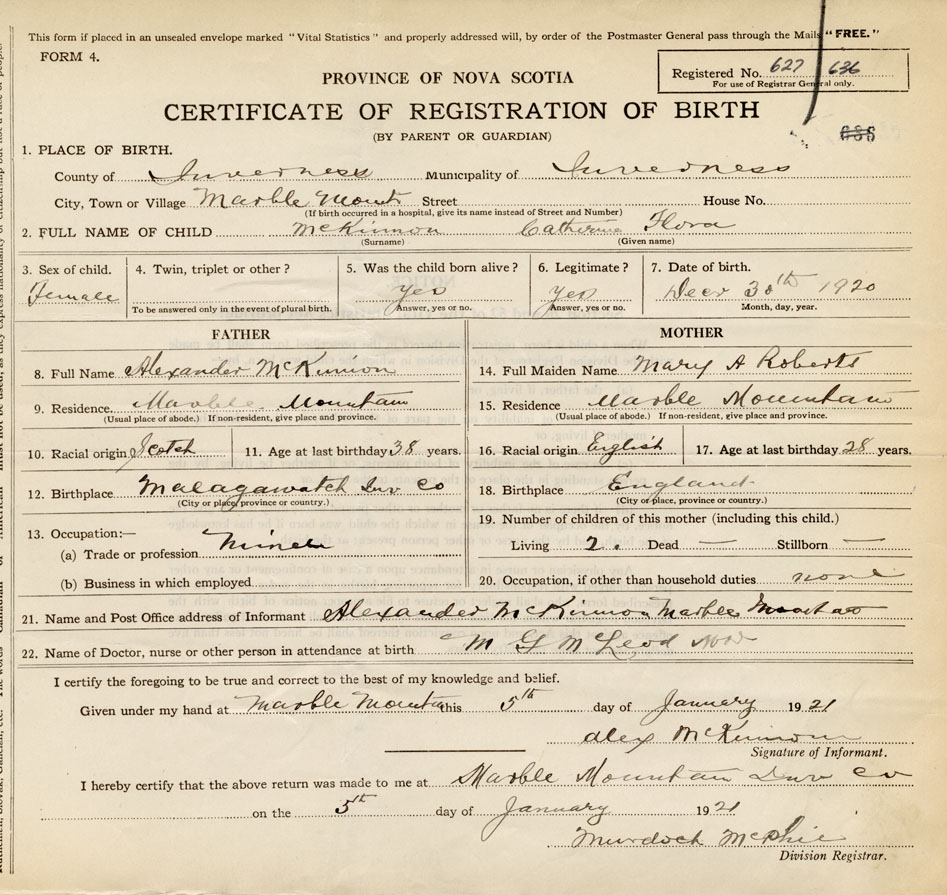 This form if placed in an unsealed envelope marked "Vital Statistics" and properly addressed will, by order of the Postmaster General pass through the Mails "FREE."
FORM 4.
Registered No. 627 636
For use of Registrar General only.
PROVINCE OF NOVA SCOTIA
CERTIFICATE OF REGISTRATION OF BIRTH
(BY PARENT OR GUARDIAN)
1. PLACE OF BIRTH.
County of Inverness Municipality of Inverness
City, Town or Village Marble Mount Street House No.
(If birth occurred in a hospital, give its name instead of Street and Number)
2. FULL NAME OF CHILD McKinnon Catherine Flora
(Surname) (Given name)
3. Sex of child. 4. Twin, triplet or other? 5. Was the child born alive? 6. Legitimate? 7. Date of birth.
Female yes yes Decr 30th 1920
To be answered only in the event of plural birth. Answer, yes or no. Answer, yes or no. Month, day, year.
FATHER
8. Full Name Alexander McKinnon
9. Residence. Marble Mountain
(Usual place of abode.) If non-resident, give place and province.
10. Racial origin Scotch 11. Age at last birthday 38 years.
12. Birthplace Malagawatch Inv Co
(City or place, province or country.)
13. Occupation:—
(a) Trade or profession Miner
(b) Business in which employed
MOTHER
14. Full Maiden Name Mary A Roberts
15. Residence Marble Mountain
(Usual place of abode.) If non-resident, give place and province.
16. Racial origin English 17. Age at last birthday 28 years.
18. Birthplace England
(City or place, province or country.)
19. Number of children of this mother (including this child.)
Living 2. Dead — Stillborn —
20. Occupation, if other than household duties none
21. Name and Post Office address of Informant Alexander McKinnon Marble Mountain
22. Name of Doctor, nurse or other person in attendance at birth M G McLeod
I certify the foregoing to be true and correct to the best of my knowledge and belief.
Given under my hand at Marble Mountain this 5th day of January 1921
Alex McKinnon
Signature of Informant.
I hereby certify that the above return was made to me at Marble Mountain Inv Co
on the 5th day of January 1921
Murdoch McPhie
Division Registrar.